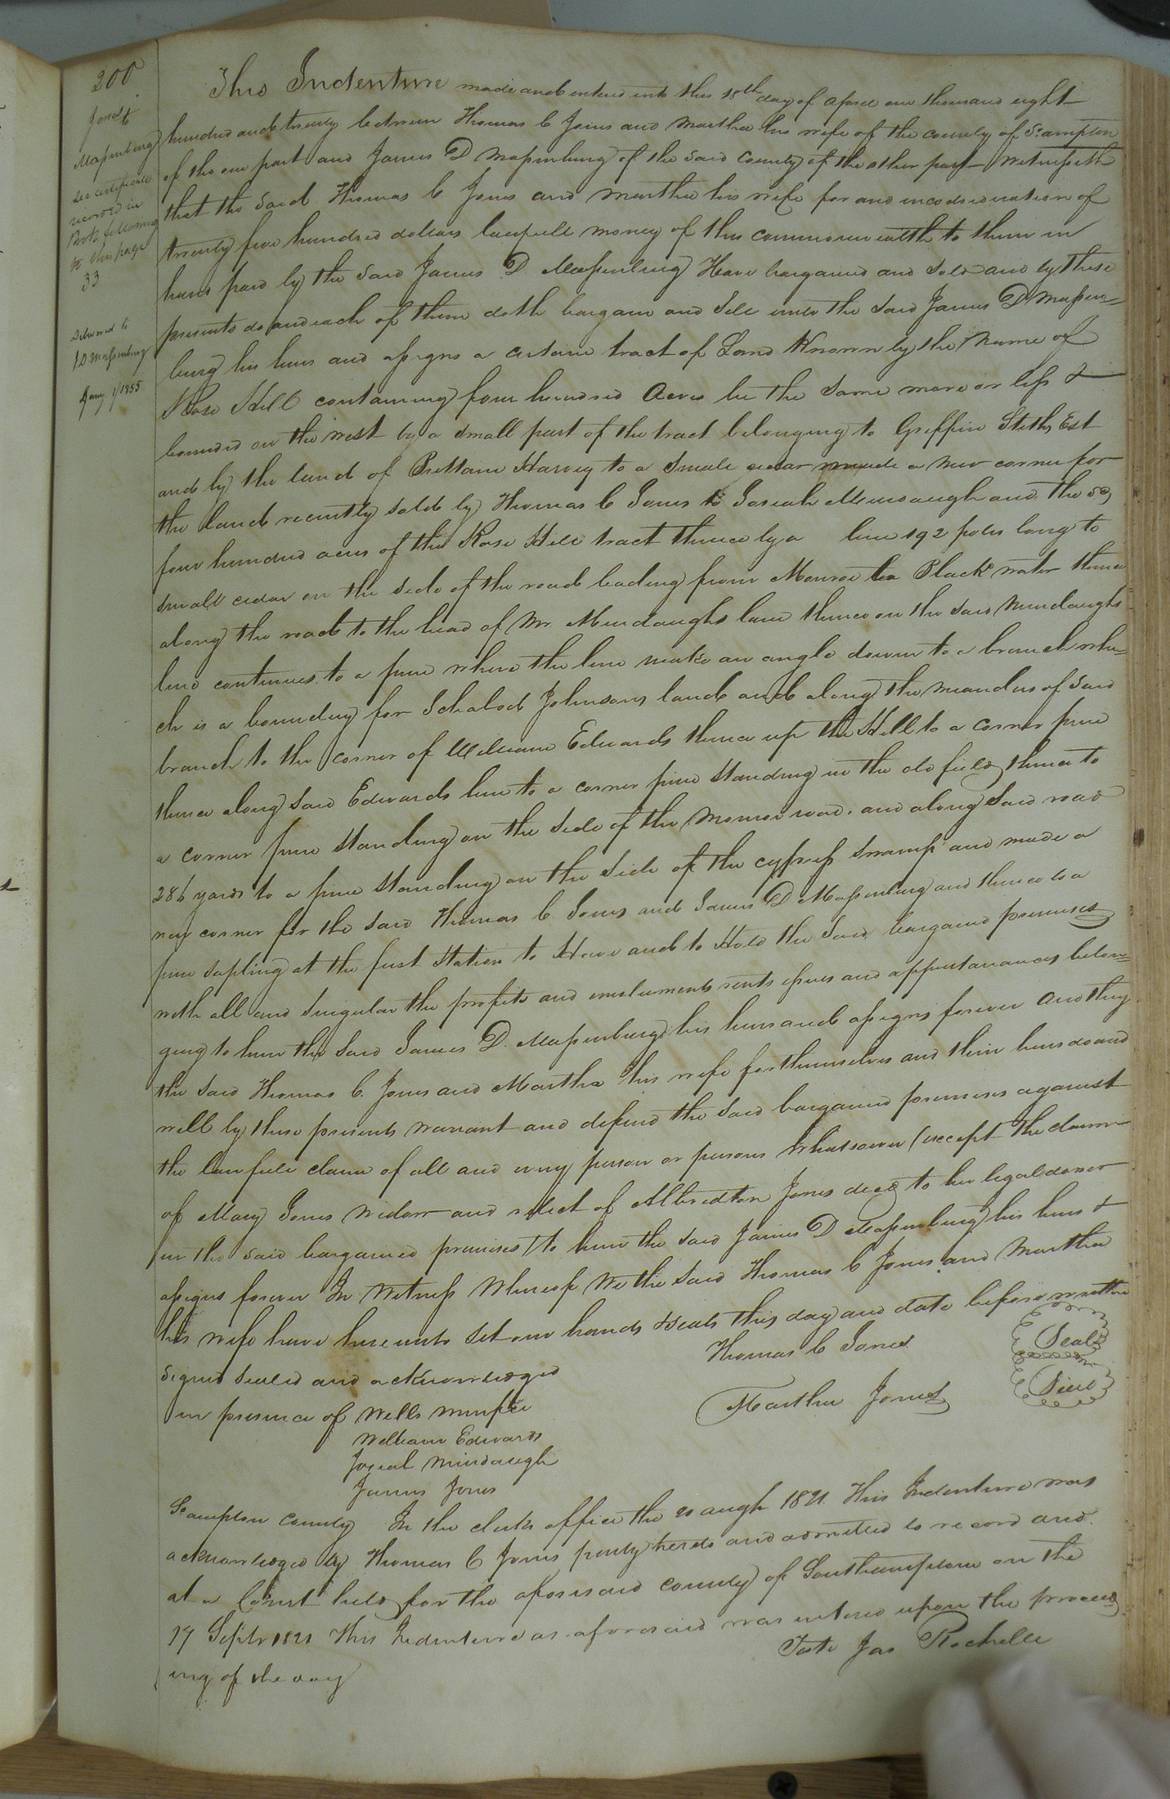 200
Jones to
Massenburg
See certificate
record in
Book following
to this page
33
Delivered to
J D Massenburg
Jany 1 1855
This Indenture made and entered into this 18th day of April one thousand eight
hundred and twenty between Thomas C Jones and Martha his wife of the county of S:ampton
of the one part and James D Massenburg of the said County of the other part Witnesseth
that the said Thomas C Jones and Martha his wife for and in consideration of
twenty five hundred dollars lawfull money of this commonwealth to them in
hand paid by the said James D Massenburg Have bargained and sold and by these
presents do and each of them doth bargain and sell unto the said James D Massen=
burg his heirs and assigns a certain tract of Land Known by the Name of
Rose Hill containing four hundred Acres be the same more or less &
bounded on the west by a small part of the tract belonging to Griffin Stith Est
and by the land of Harvey to a small cedar made a new corner for
the land recently sold by Thomas C Jones to Josiah Mindaugh and the sd
four hundred acres of the Rose Hill tract thence by a line 192 poles long to
small cedar on the side of the road leading from Monroe to Black water thence
along the road to the head of Mr Mindaughs lane thence on the said Mindaughs
line continues to a pine where the line make an angle down to a branch whi=
ch is a boundary for Johnsons land and along the meanders of said
branch to the corner of William Edwards thence up the Hill to a corner pine
thence along said Edwards line to a corner pine standing in the old field thence to
a corner pine standing on the side of the Monroe road. and along said road
286 yards to a pine standing on the side of the cypress swamp and made a
new corner for the said Thomas C Jones and James D Massenburg and thence to a
pine sapling at the first station to Have and to Hold the said bargained premises
with all and singular the profits and emoluments rents issues and appurtanances belon=
ging to him the said James D. Massenburg his heirs and assigns forever And they
the said Thomas C. Jones and Martha his wife for themselves and their heirs do and
will by these presents warrant and defend the said bargained premises against
the lawfull claim of all and every person or persons whatsoever (except the claim
of Mary Jones widow and relict of Albridgton Jones decd to her legal dower
in the said bargained premises) to him the said James D Massenburg his heirs &
assigns forever In Witness Whereof We the said Thomas C Jones and Martha
his wife have hereunto set our hands & seals this day and date before written
Signed sealed and acknowledged
in presence of Wells
William Edwards
Josiah Mindaugh
James Jones
Thomas C Jones Seal
Martha Jones Seal
S:ampton County In the clerks office the 20 augst 1821. This Indenture was
acknowledged by Thomas C Jones party hereto and admitted to record and.
at a Court held for the aforesaid county of Southampton on the
17 Septr 1821 This Indenture as aforesaid was entered upon the proceed
ing of the day
Teste Jas Rochelle